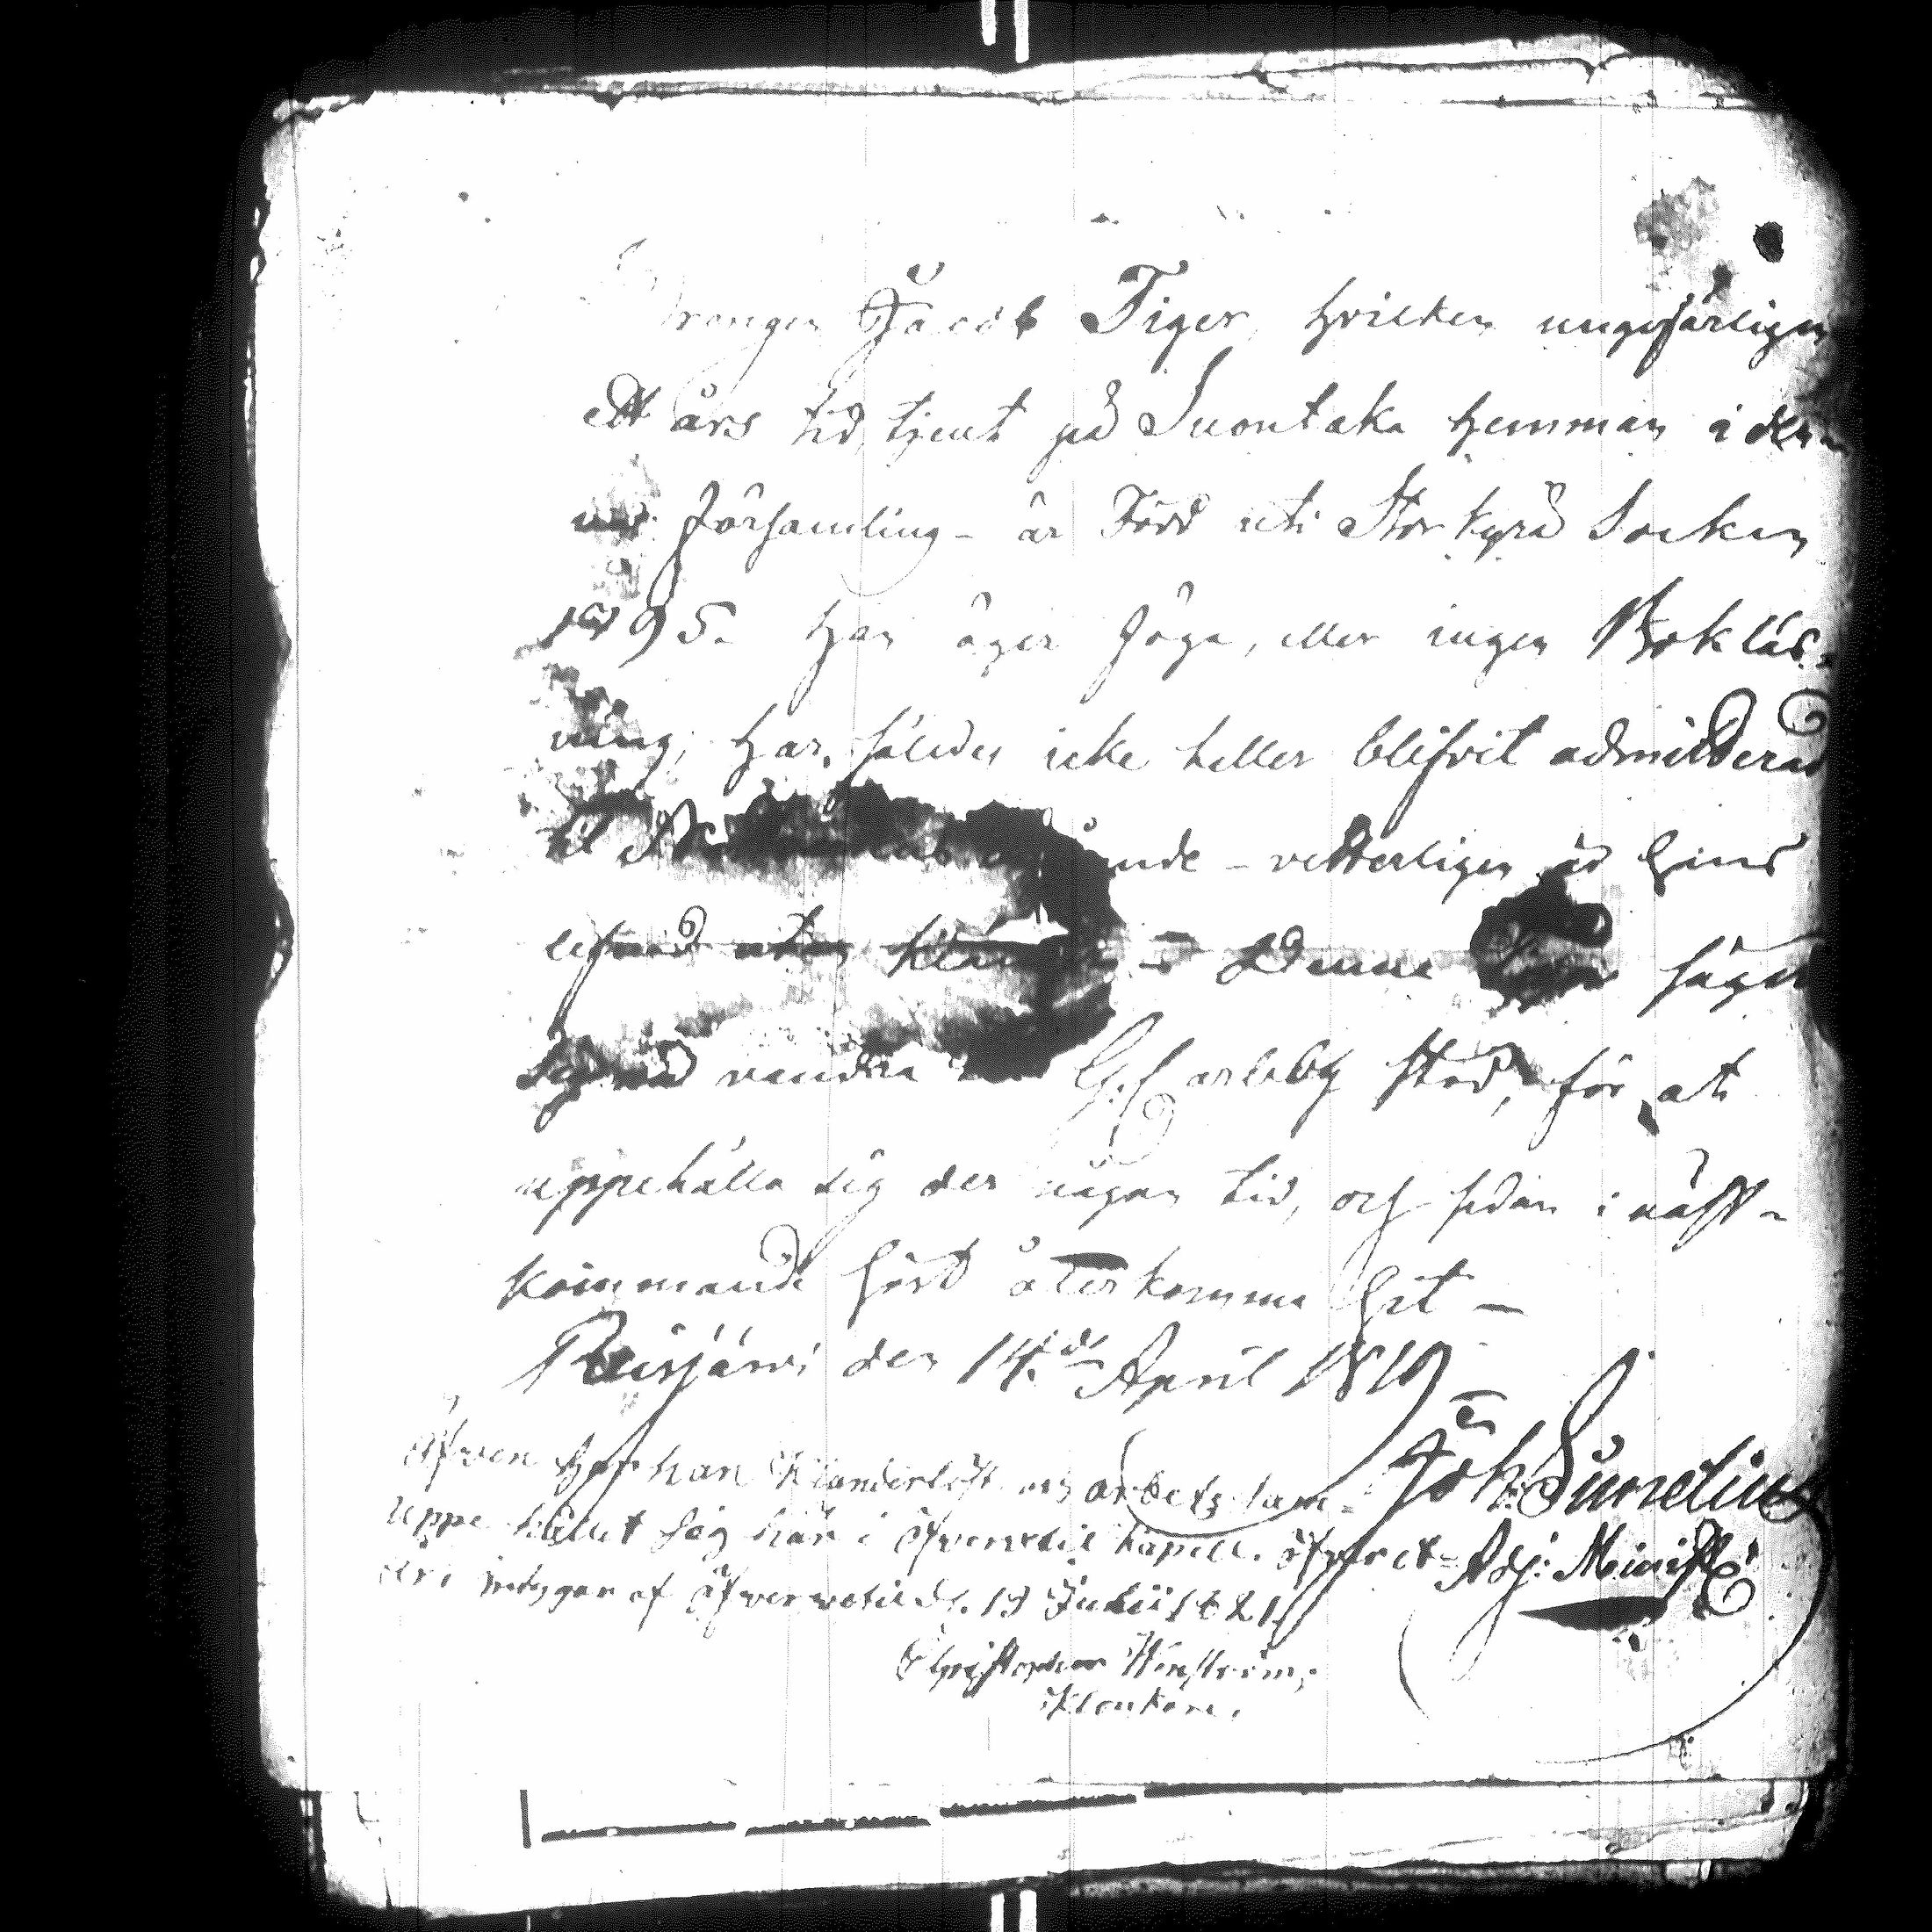 Drengen Jacob Tiger, hvilken ungefärligen
ett års tid tjent på Suontaka hemman i den-
na församling - är Född uti Storkyrå Socken
1795. Han äger föga, eller ingen Bokläs-
ning, har således icke heller blifvit admitterad
til vetterligen är hans
lefnad utan Denna säger
sig nu vandra G:Carleby stad, för att
uppehålla sig der någon tid, och sedan i näst-
kommande höst återkomma hit —
Reisjärvi den 14de April 1819
Joh: Sunelius
Adj: Minist:
Äfven har han klanderlöst och arbetssam-
uppehållit sig här i Öfvervetil Kapell.
intygar af Öfvervetil d. 19 Julii 1821
Christopher
Klockare.